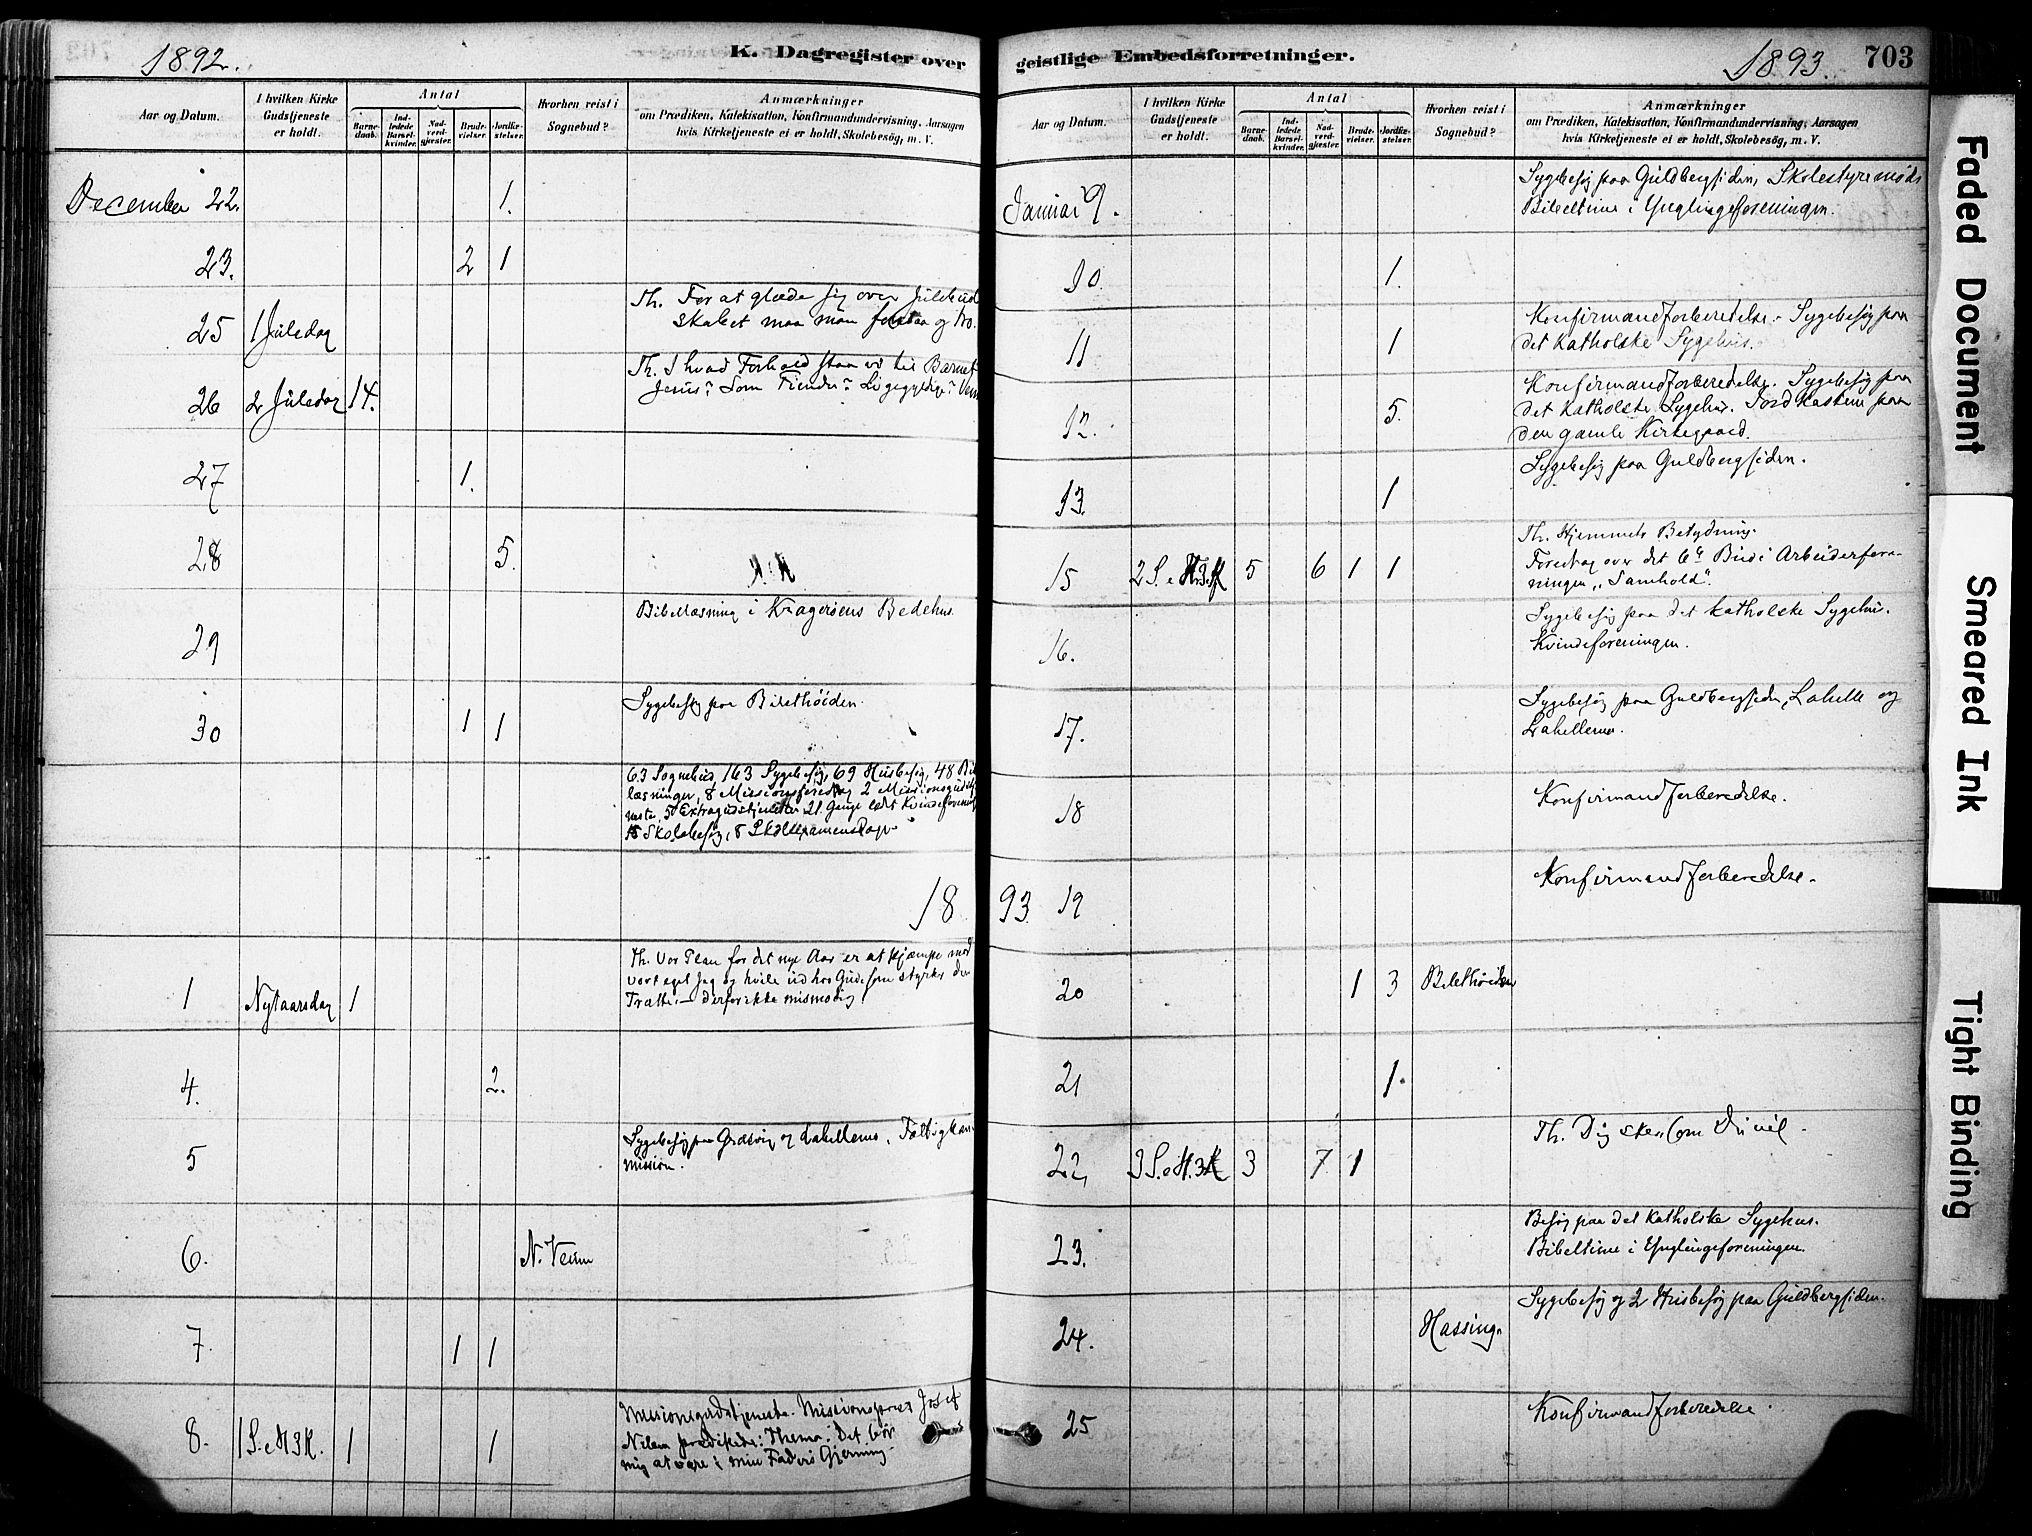 1892.
K. Dagregister over
Aar og Datum.
I hvilken Kirke Gudstjeneste er holdt.
Antal
Barne-daab.
Ind-ledede Barsel-kvinder.
Nad-verd-gjæster.
Brude-vielser.
Jordfæ-stelser.
Hvorhen reist i Sognebud?
Anmærkninger
om Prædiken, Katekisation, Konfirmandundervisning, Aarsagen
hvis Kirketjeneste ei er holdt, Skolebesög, m. V.
December 22. 1.
23. 2 1
25 1 Juledag Th. For at glæde sig over Julebud
skabet maa man forstaa og tro.
26 2 Juledag 14. Th. I hvad Forhold staa vi til Barnet
Jesus? Som Fiender? Ligegyldige? Ven
27 1.
28 5.
29 Bibellæsning i Kragerøens Bedehus
30 1 1 Sygebesøg paa Bilethöiden.
63 Sognebud, 163 Sygebesøg, 69 Husbesøg, 48 Bi
læsninger, 8 Missionsforedrag 2 Missionsgudstj
neste, 5 Extragudstjenester 21 Gange ledt Kvindeforening
18 Skolebesøg, 8 Skoleexamensdage
18
1 Nytaarsdag 1 Th. Vor Plan for det nye Aar er at kjæmpe mod
vort eget Jeg og hvile ud hos Gud som styrker den
Trætte. – derfor ikke mismodig!
4. 2.
5 Sygebesøg paa Græsvig og Lahellerne. Fattigkom
mission.
6. N. Veum
7. 1 1
8. 1 S. e H3K. 1 1 Missionsgudstjeneste. Missionsprest Josef
Nilsen prædikede: Thema: Det bör
mig at være i min Faders Gjerning
geistlige Embedsforretninger.
1893.
703
Aar og Datum.
I hvilken Kirke Gudstjeneste er holdt.
Antal
Barne-daab.
Ind-ledede Barsel-kvinder.
Nad-verd-gjæster.
Brude-vielser.
Jordfæ-stelser.
Hvorhen reist i Sognebud?
Anmærkninger
om Prædiken, Katekisation, Konfirmandundervisning, Aarsagen
hvis Kirketjeneste ei er holdt, Skolebesög, m. V.
Januar 9. Sygebesøg paa Guldbergsiden, Skolestyremøde
Bibeltime i Ynglingeforeningen.
10. 1.
11 1 Konfirmandforberedelse. Sygebesøg paa
det katholske Sygehus.
12. 5. Konfirmandforberedelse. Sygebesøg paa
det katholske Sygehus. Jordkastelse paa
den gamle Kirkegaard.
13. 1 Sygebesøg paa Guldbergsiden.
15 2 S. e H3K 5 6 1 1 Th. Hjemmets Betydning.
Foredrag over det 6te Bud i Arbeiderfore-
ningen „Samhold“.
16. Sygebesøg paa det katholske Sygehus.
Kvindeforeningen.
17. Sygebesøg paa Guldbergsiden, Lahelle og
Lahellerne.
18 Konfirmandforberedelse.
93 19 Konfirmandforberedelse.
20 1 3 Bilethöiden
21 1.
22, 3 S. e H. 3K 3 7 1 Th. Dig ske som Du vil.
23. Besøg paa det katholske Sygehus.
Bibeltime i Ynglingeforeningen.
24. Hassing. Sygebesøg og 2 Husbesøg paa Guldbergsiden.
25 Konfirmandforberedelse.
Faded Document
Smeared Ink
Tight Binding